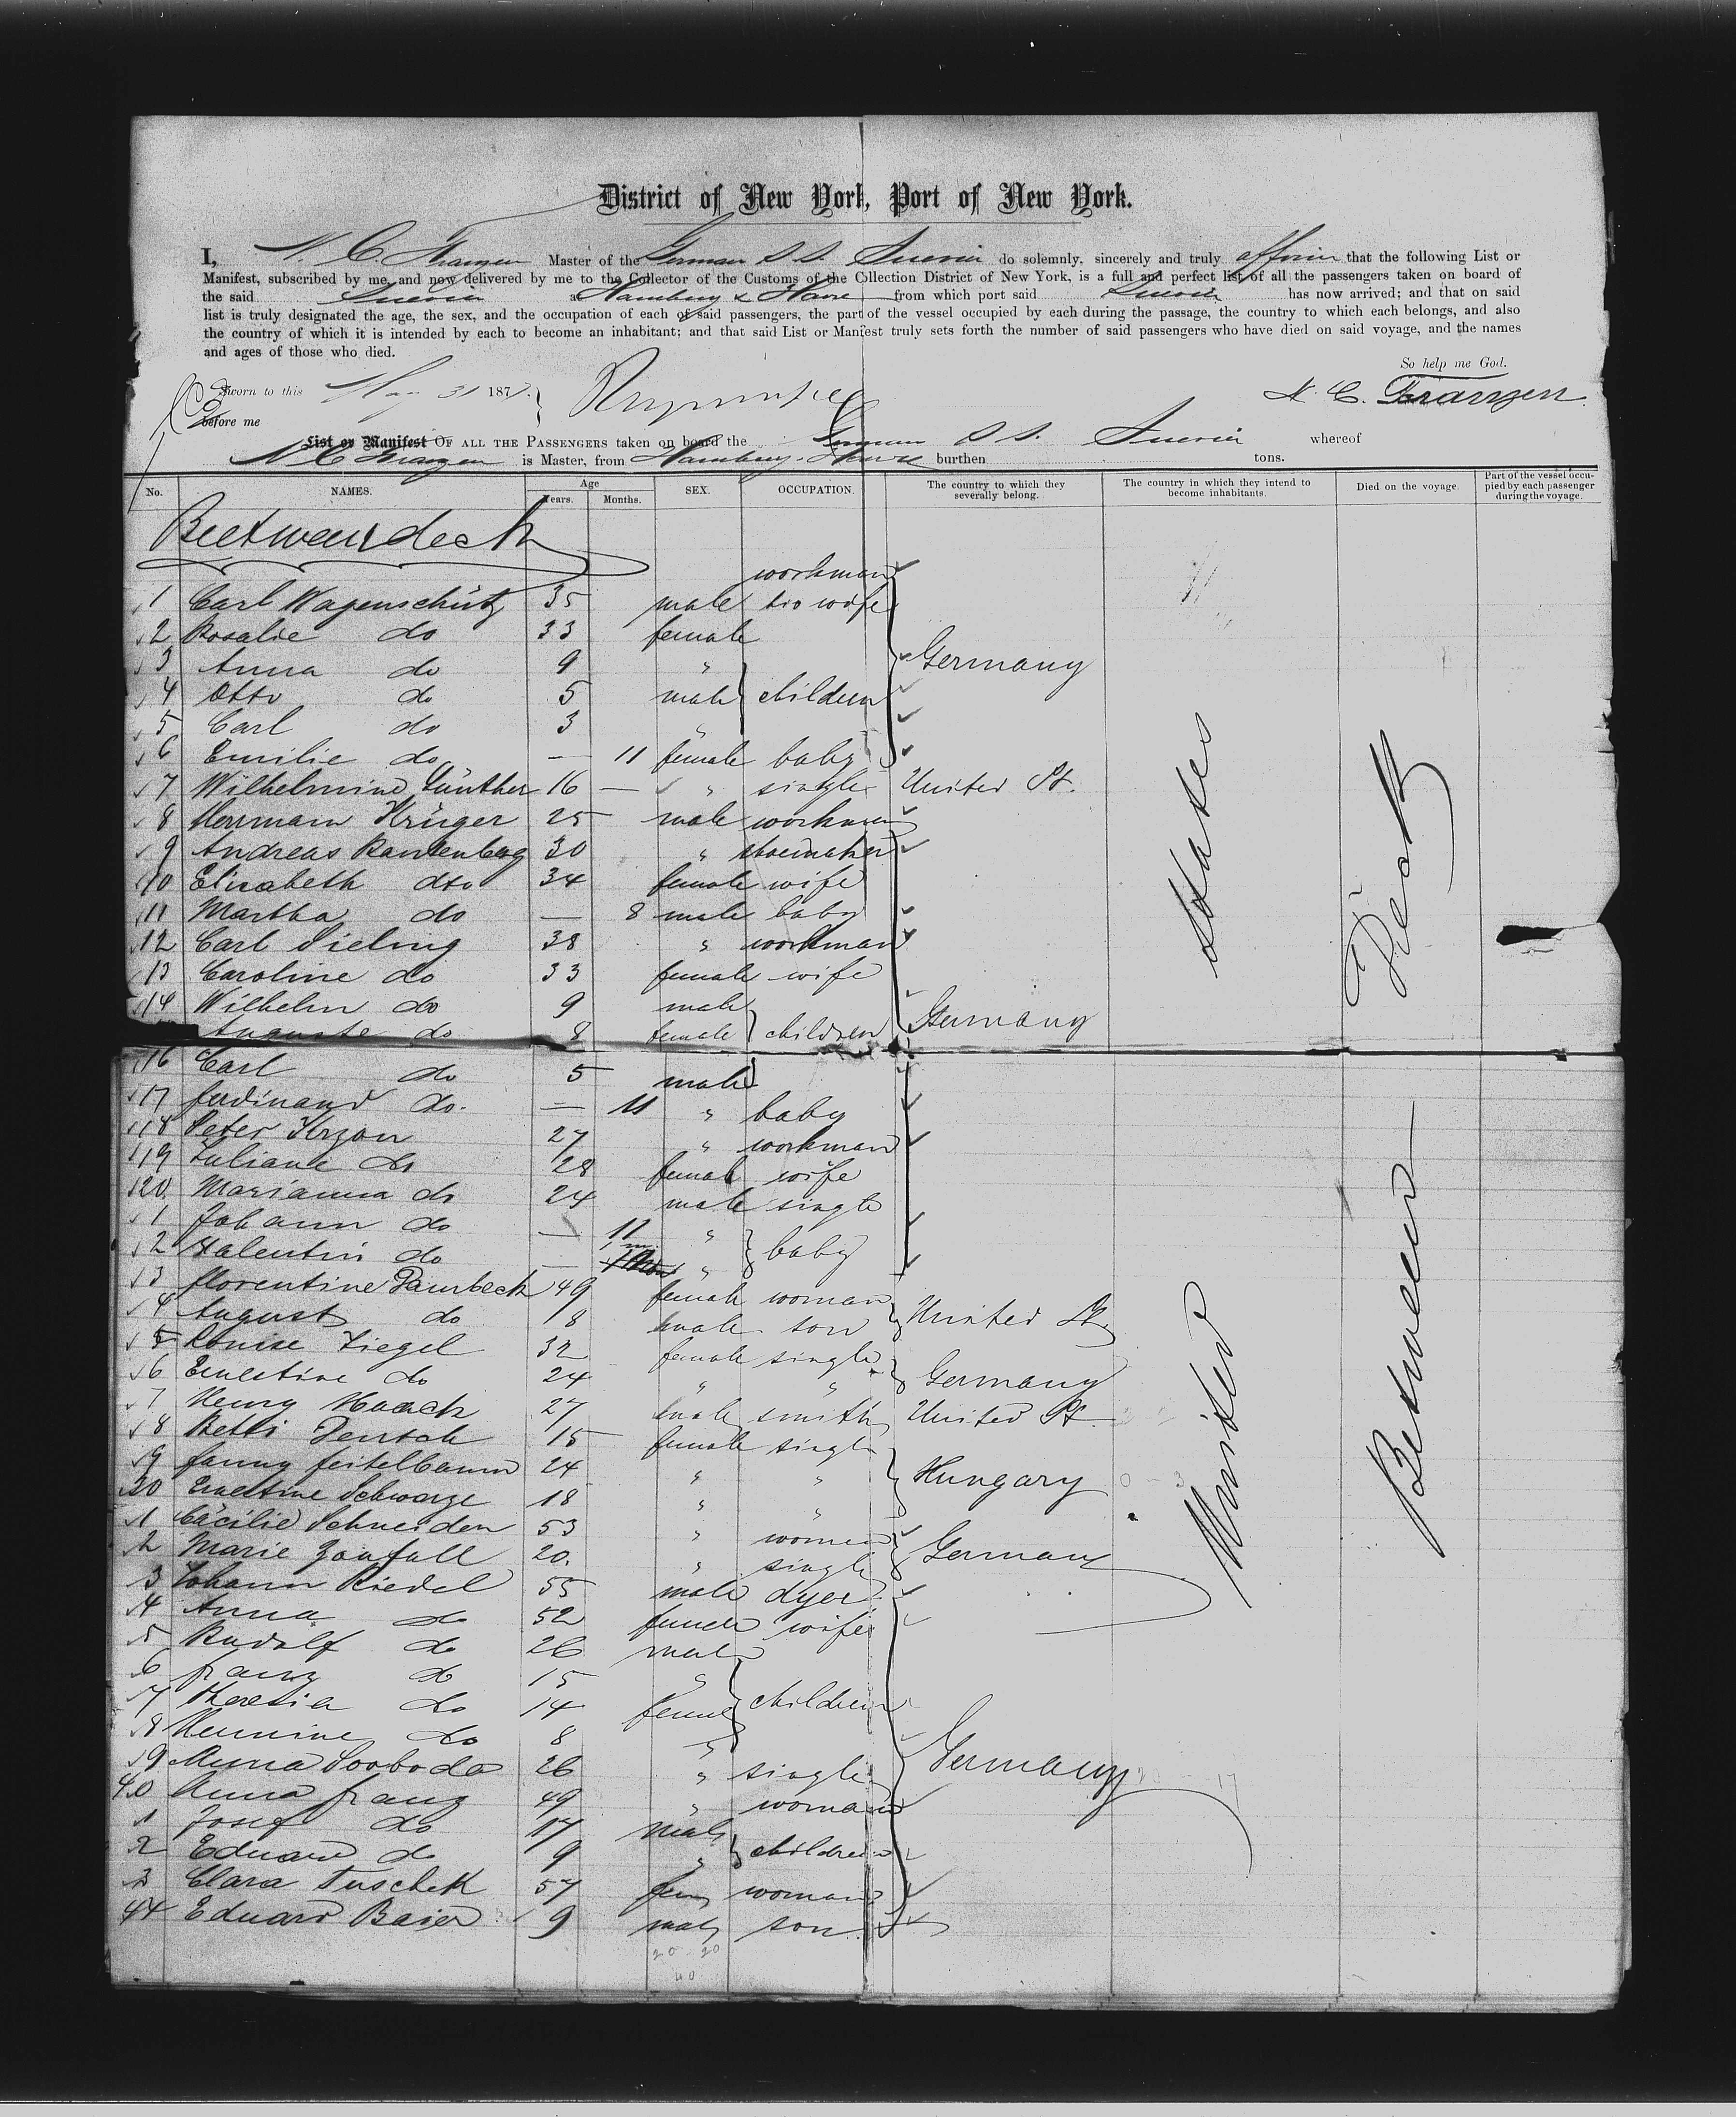 District of New York, Port of New York.
I, N. C. Franzen Master of the German S. S. Suevia do solemnly, sincerely and truly affirm that the following List or
Manifest, subscribed by me, and now delivered by me to the Collector of the Customs of the Collection District of New York, is a full and perfect list of all the passengers taken on board of
the said Suevia Hamburg & Havre from which port said Suevia has now arrived; and that on said
list is truly designated the age, the sex, and the occupation of each of said passengers, the part of the vessel occupied by each during the passage, the country to which each belongs, and also
the country of which it is intended by each to become an inhabitant; and that said List or Manifest truly sets forth the number of said passengers who have died on said voyage, and the names
and ages of those who died.
So help me God.
Sworn to this May 31 187
N. C. Franzen
before me
List or Manifest OF ALL THE PASSENGERS taken on board the German S S. Suevia whereof
N C Franzen is Master, from Hamburg. Havre burthen tons.
No. NAMES. Age Years. Months. SEX. OCCUPATION. The country to which they severally belong. The country in which they intend to become inhabitants. Died on the voyage. Part of the vessel occupied by each passenger during the voyage.
Beetween deck
workman
1 Carl Wagenschütz 35 male his wife
2 Rosalie do 33 female
3 Anna do 9 " Germany
4 Otto do 5 male children
5 Carl do 3 "
6 Emilie do — 11 female baby
7 Wilhelmine Günther 16 — " single United St.
8 Herrmann Krüger 25 male workman
9 Andreas Rantenberg 30 " shoemaker
10 Elisabeth dto 34 female wife
11 Martha do — 8 male baby
12 Carl Sieling 38 " workman
13 Caroline do 33 female wife
14 Wilhelm do 9 male
Auguste do 8 female children Germany
16 Carl do 5 male
17 ferdinand do. — 11 " baby
18 Peter 27 " workman
19 Juliane do 28 female wife
20. Marianna do 24 male single
1 Johann do — 11 "
2 Valentin do — " baby
3 florentine 49 female woman
4 August do 18 male son United St.
5 Louise Ziegel 32 female single
6 Ernestine do 24 " " Germany
7 Henry Haack 27 male smith United St
8 Betti Deutsch 15 female single
9 fanny feitelbaum 24 " " Hungary
30 Ernestine Schwarze 18 " "
1 Cäcilie Schneider 53 " women
2 Marie 20. " single Germany
3 Johann Riedel 55 male dyer
4 Anna do 52 female wife
5 Rudolf do 26 male
6 franz do 15 "
7 Theresia do 14 female children
8 Hermine do 8 "
9 Anna Swoboda 26 " single Germany
40 Anna franz 49 " woman
1 Josef do 17 male
2 Eduard do 9 " children
3 Clara Tuschek 57 fem woman
44 Eduard Baier 9 male son
20 20
40
United States
Between Deck